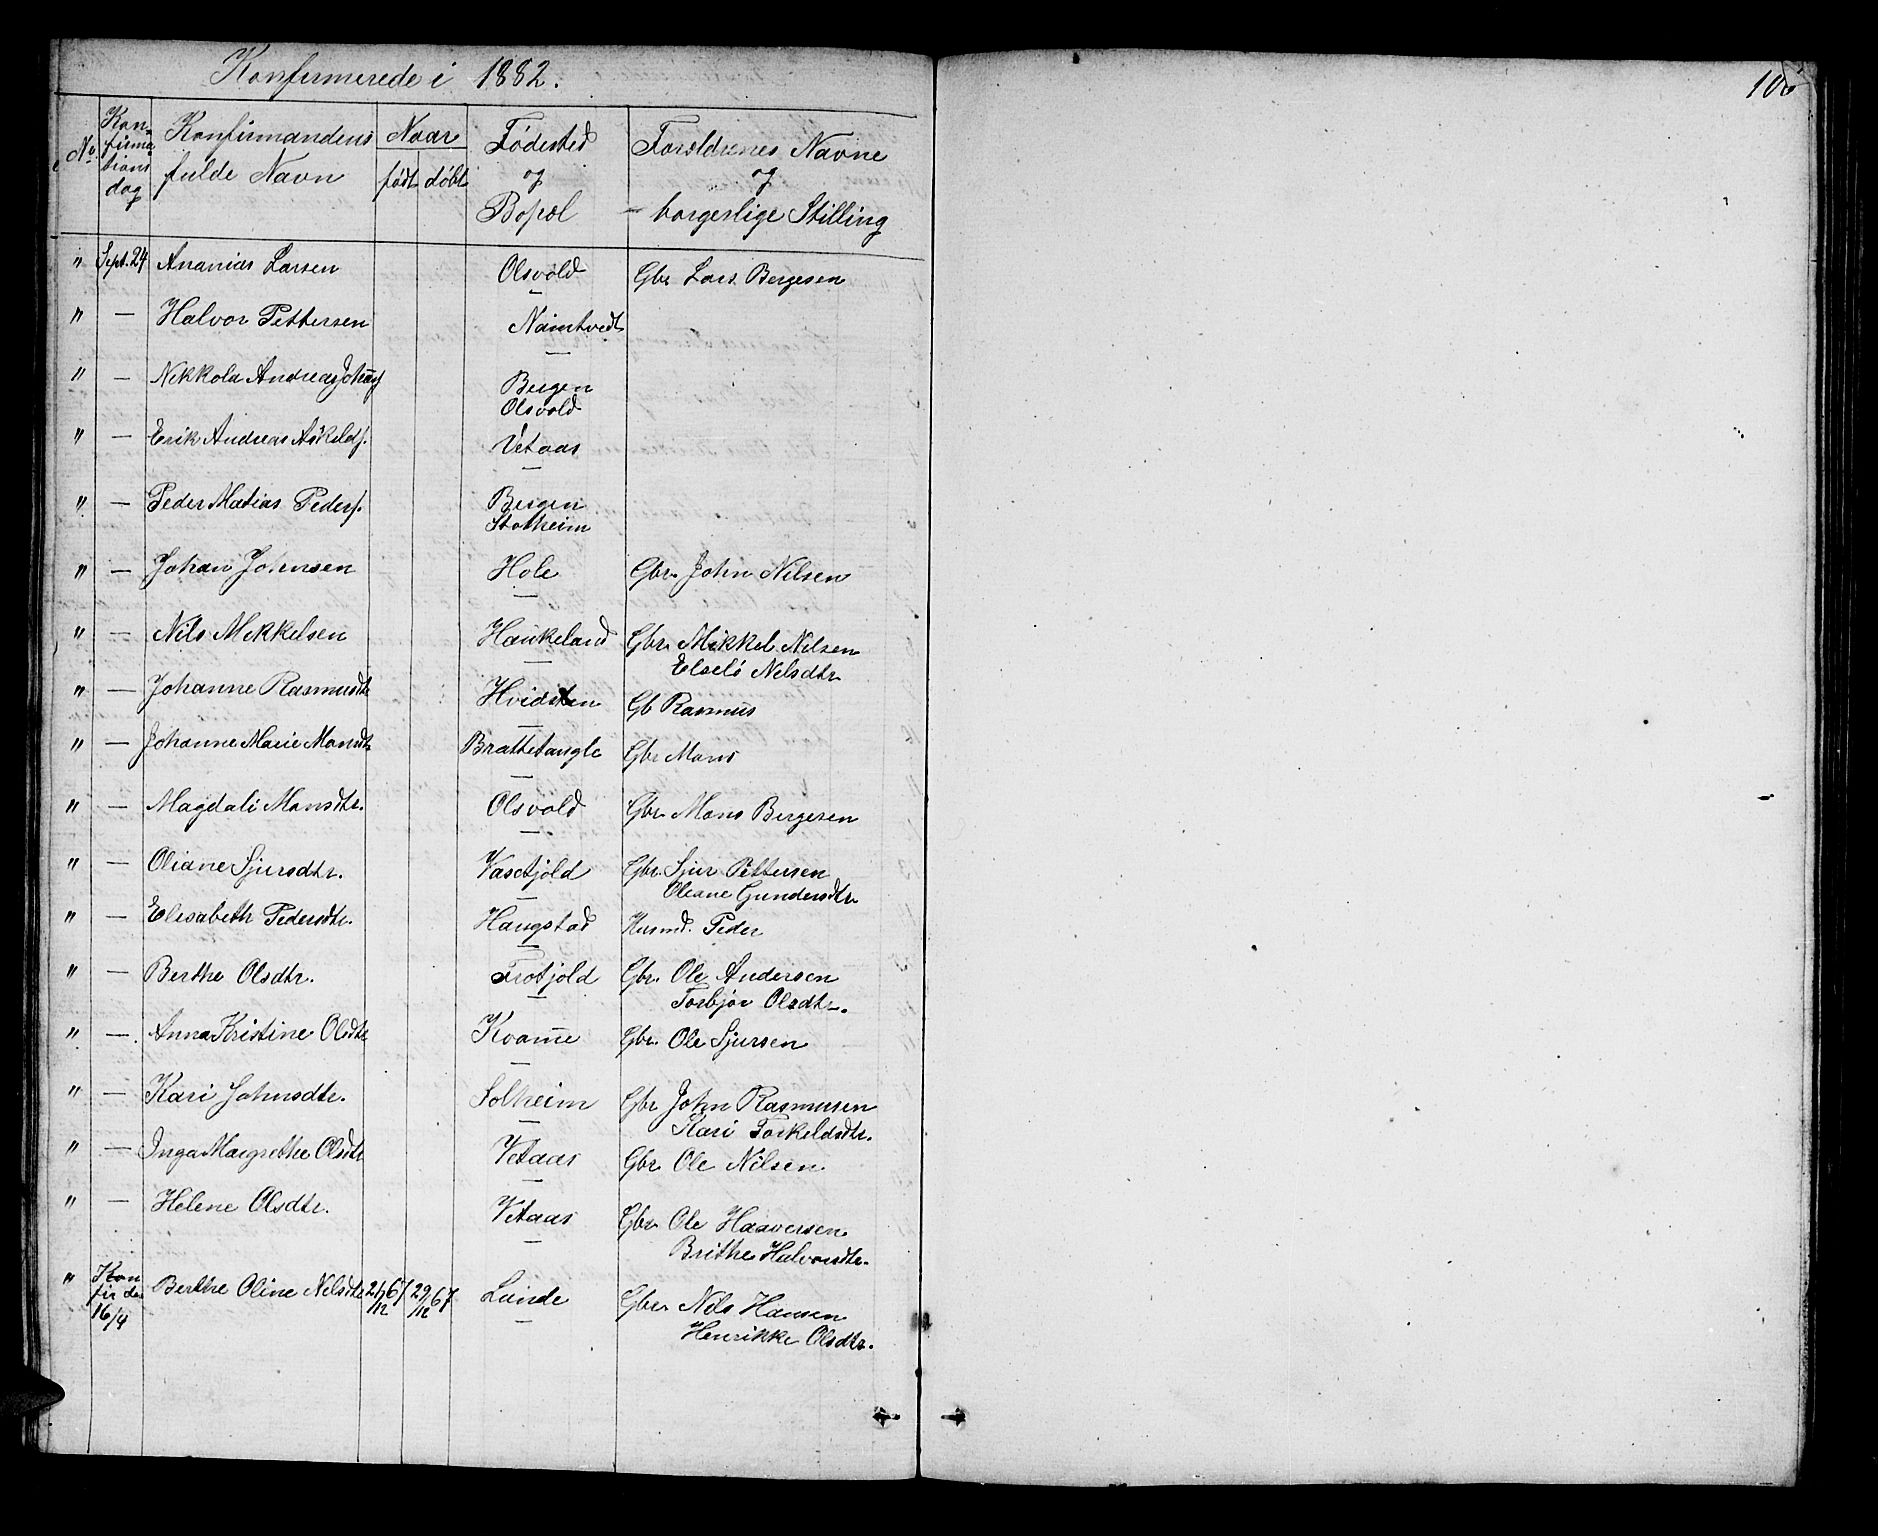 Konfirmerede i 1882.
106
No
Kon-
firma
tions
dag
Konfirmandens
fulde Navn
Naar
født døbt
Fødested
og
Bopæl
Forældrenes Navne
og
borgerlige Stilling
" Sept. 24 Ananias Larsen Olsvold Gbr Lars Bergesen
" — Halvor Pettersen Namtvedt
" — Nikkola Andreas Bergen
Olsvold
" — Erik Andreas Askelds. Vetaas
" — Peder Matias Peders. Bergen
Stotheim
" — Johan Johnsen Hole Gbr. John Nilsen
" — Nils Mikkelsen Haukeland Gbr. Mikkel Nilsen
Elselё Nilsdtr
" — Johanne Rasmusdtr Hvidsten Gb Rasmus
" — Johanne Marie Monsdtr Brattetangle Gbr Mons
" — Magdali Monsdtr. Olsvold Gbr. Mons Bergesen
" — Oliane Sjursdtr. Vasetjold Gbr. Sjur Pettersen
Oliane Gundersdtr.
" — Elisabeth Pedersdtr. Haugstad Husmd. Peder
" — Berthe Olsdtr. Trotjold Gbr. Ole Andersen
Torbjør Olsdtr.
" — Anna Kristine Olsdtr Kvam̄e Gbr. Ole Sjursen
" — Kari Johnsdtr. Solheim Gbr John Rasmusen
Kari Torkeldsdtr.
" — Inga Margrethe Olsdtr Vetaas Gbr Ole Nilsen.
" — Helene Olsdtr. Vetaas Gbr. Ole Haaversen
Brithe Halvorsdtr.
" Kon
fir den
16/4 Berthe Oline Nilsdtr 21/12 67 29/12 67 Lunde Gbr Nils Hansen
Henrikke Olsdtr.